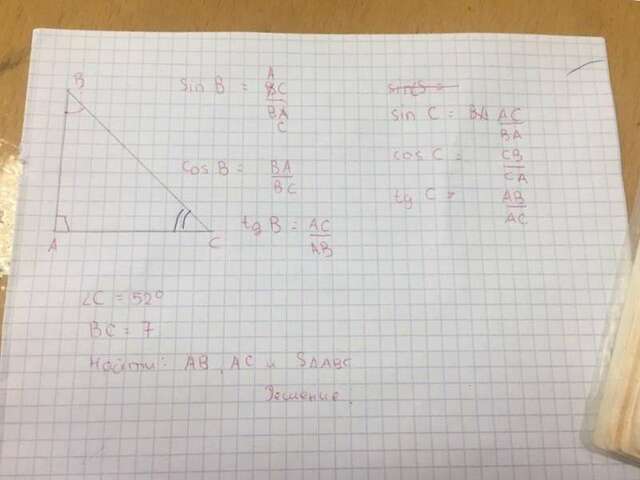 B
A
C
sin B = AC/BC
cos B = BA/BC
tg B = AC/AB
sin C =
sin C = BA AC/BA
cos C = CB/CA
tg C = AB/AC
∠C = 52°
BC = 7
Найти: AB, AC и S△ABC
Решение.